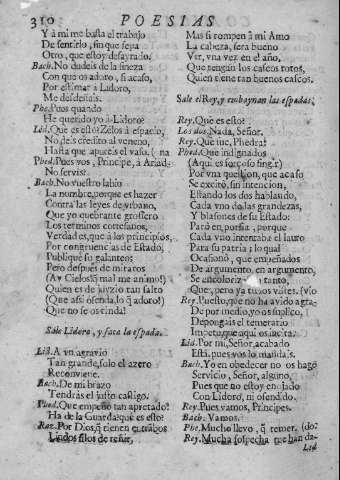 310 POESIAS
Y à mi me basta el trabajo
De sentirlo, sin que sepa
Otro, que estoy desayrado.
Bach. No dudeis de la fineza
Con que os adoro, si acaso,
Por estimar à Lidoro,
Me desdeñais.
Phed. Pues quando
He querido yo à Lidoro?
Lid. Que es esto? Zelos à espacio,
No deis credito al veneno,
Hasta que apureis el vaso.
Phed. Pues vos, Principe, à Ariad-
No servis?
Bach. No vuestro labio
La nombre, porque es hazer
Contra las leyes de vrbano,
Que yo quebrante grossero
Los terminos cortesanos,
Verdad es, que à los principios,
Por congruencias de Estado,
Publiquè su galanteo;
Pero despues de miraros
(Ay Cielos, q mal me animo!)
Quien es de juyzio tan falto
(Que assi ofenda lo q adoro!)
Que no se os rinda!
Sale Lidoro, y saca la espada.
Lid. A vn agravio
Tan grande, solo el azero
Reconviene.
Bach. De mi brazo
Tendràs el justo castigo.
Phed. Que empeño tan apretado!
Ha de la Guarda: què es esto?
Rac. Por Dios, q tienen entrābos
Lindos filos de reñir,
Mas si rompen à mi Amo
La cabeza, serà bueno
Ver, vna vez en el año,
Que tengan los cascos rotos,
Quien tiene tan buenos cascos.
Sale el Rey, y embaynan las espadas.
Rey. Què es esto?
Los dos. Nada, Señor.
Rey. Què fue, Phedra?
Phed. Que indignados
(Aqui es forçoso fingir)
Por vna question, que acaso
Se excitò, sin intencion,
Estando los dos hablando,
Cada vno de las grandezas,
Y blasones de su Estado:
Parò en porfia, porque
Cada vno intentaba el lauro
Para su patria; lo qual
Ocasionò, que empeñados
De argumento, en argumento,
Se encolorizaron tanto,
Que; pero ya tu los viste.
Rey. Puesto, que no ha avido agra-
De por medio, yo os suplico,
Depongais el temerario
Impetu, que aqui os incita.
Lid. Por mi, Señor, acabado
Està, pues vos lo mandais.
Bach. Yo en obedecer no os hago
Servicio, Señor, alguno,
Pues que no estoy enojado
Con Lidoro, ni ofendido.
Rey. Pues vamos, Principes.
Bach. Vamos.
Phe. Mucho llevo, q temer.
Rey. Mucha sospecha me han da-